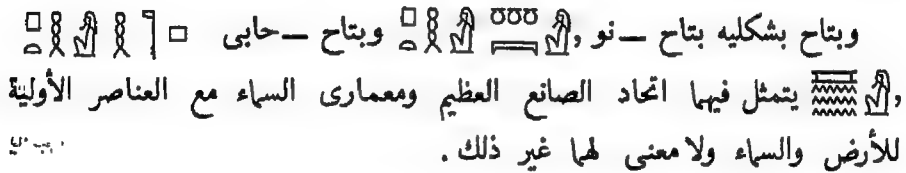 وبتاح بشكليه بتاح ــ نو , وبتاح ــ حابى
, يتمثل فيهما اتحاد الصانع العظيم ومعمارى السماء مع العناصر الأولية
للأرض والسماء ولا معنى لهما غير ذلك .